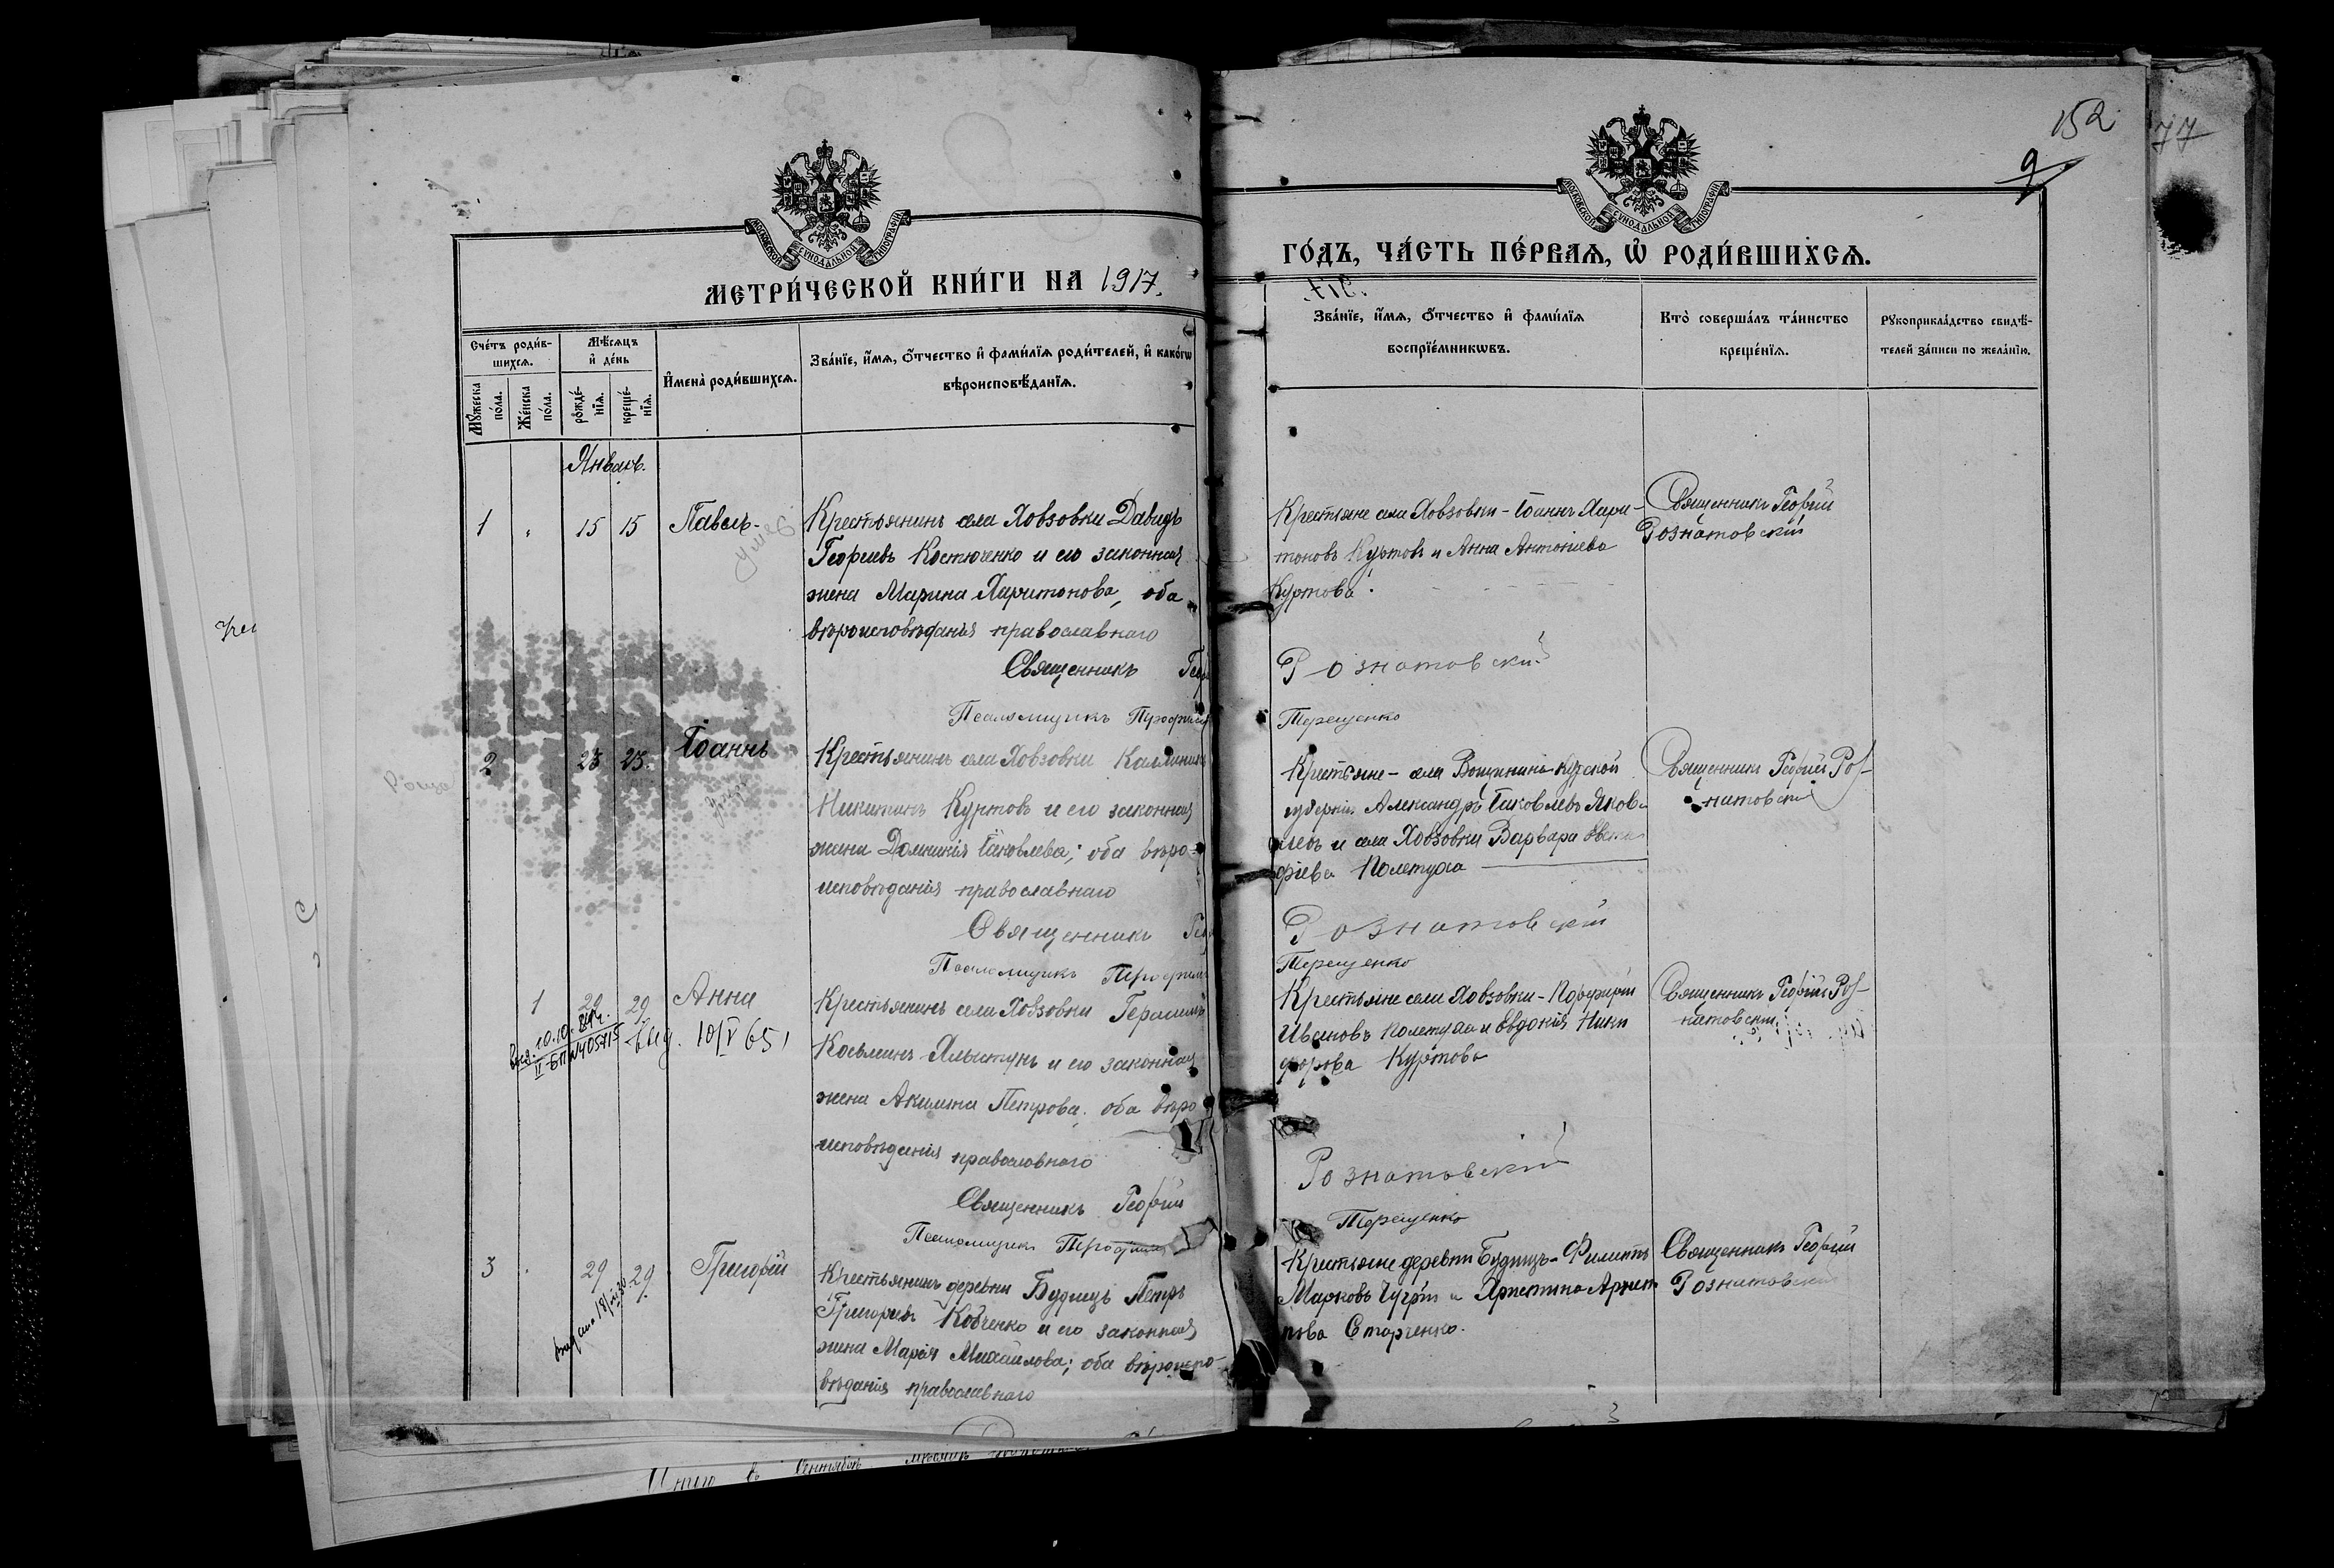 152
77
9
МОСКОВСКОЙ СѴНОДАЛЬНОЙ ТИПОГРАФІИ
МОСКОВСКОЙ СѴНОДАЛЬНОЙ ТИПОГРАФІИ
МЕТРИ́ЧЕСКОЙ КНИ́ГИ НА 1917.
ГО́ДЪ, ЧА́СТЬ ПЕ́РВАѦ, Ѡ҆ РОДИ́ВШИХСѦ.
Сче́тъ роди́в-
шихсѧ.
Мѣ́сѧцъ
и҆ де́нь
Мꙋ́жеска
по́ла.
Же́нска
по́ла.
рожде́-
нїѧ.
креще́-
нїѧ.
И҆мена̀ роди́вшихсѧ.
Зва́нїе, и҆́мѧ, ѻ҆́тчество и҆ фами́лїѧ роди́телей, и҆ како́гѡ
вѣроисповѣ́данїѧ.
Зва́нїе, и҆́мѧ, ѻ҆́тчество и҆ фами́лїѧ
воспрїе́мникѡвъ.
Кто̀ соверша́лъ та́инство
креще́нїѧ.
Рꙋкоприкла́дство свидѣ́-
телей за́писи по жела́нїю.
Январь.
1 " 15 15 Павелъ-
умер
Крестьянинъ села Ховзовки Давидъ
Георгіевъ Костюченко и его законная
жена Марина Харитонова, оба
вѣроисповѣданія православнаго
Священникъ
Псаломщикъ
Крестьяне села Ховзовки - Іоаннъ Хари-
тоновъ Куртовъ и Анна Антоніева
Куртова.
Рознатовскій
Терещенко
Священникъ Георгій
Рознатовскій
2 23 23. Іоаннъ
Крестьянинъ села Ховзовки
Никитинъ Куртовъ и его законная
жена Домникія Іаковлева; оба вѣро-
исповѣданія православнаго
Священникъ
Псаломщикъ
Крестьяне - села Курской
губерніи Александръ Іаковлевъ Яков-
левъ и села Ховзовки Варвара Евста-
фіева Полетуха
Рознатовскій
Терещенко
Священникъ Георгій Роз-
натовскій
1 29 29 Анна
10.10.
выд. 10/V 65
Крестьянинъ села Ховзовки Герасимъ
Косьминъ и его законная
жена Акилина Петрова; оба вѣро
исповѣданія православнаго
Священникъ Георгій
Псаломщикъ
Крестьяне села Ховзовки - Порфирій
Ивановъ Полетуха и Евдокія Ники
форова Куртова
Рознатовскій
Терещенко
Священникъ Георгій Роз-
натовскій
3 29 29 Григорій
Крестьянинъ деревни Будищъ Петръ
Григорьевъ Кобченко и его законная
жена Марія Михаилова; оба вѣроиспо-
вѣданія православнаго
Крестьяне деревни Будищъ - Филиппъ
Марковъ и Христина
Старченко.
Священникъ Георгій
Рознатовскій